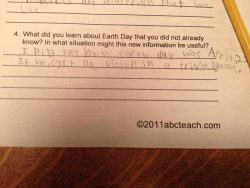 materials that we
use
4. What did you learn about Earth Day that you did not already
know? In what situation might this new information be useful?
I Did not know earth day was April
It might be useful in a trivia game.
©2011abcteach.com